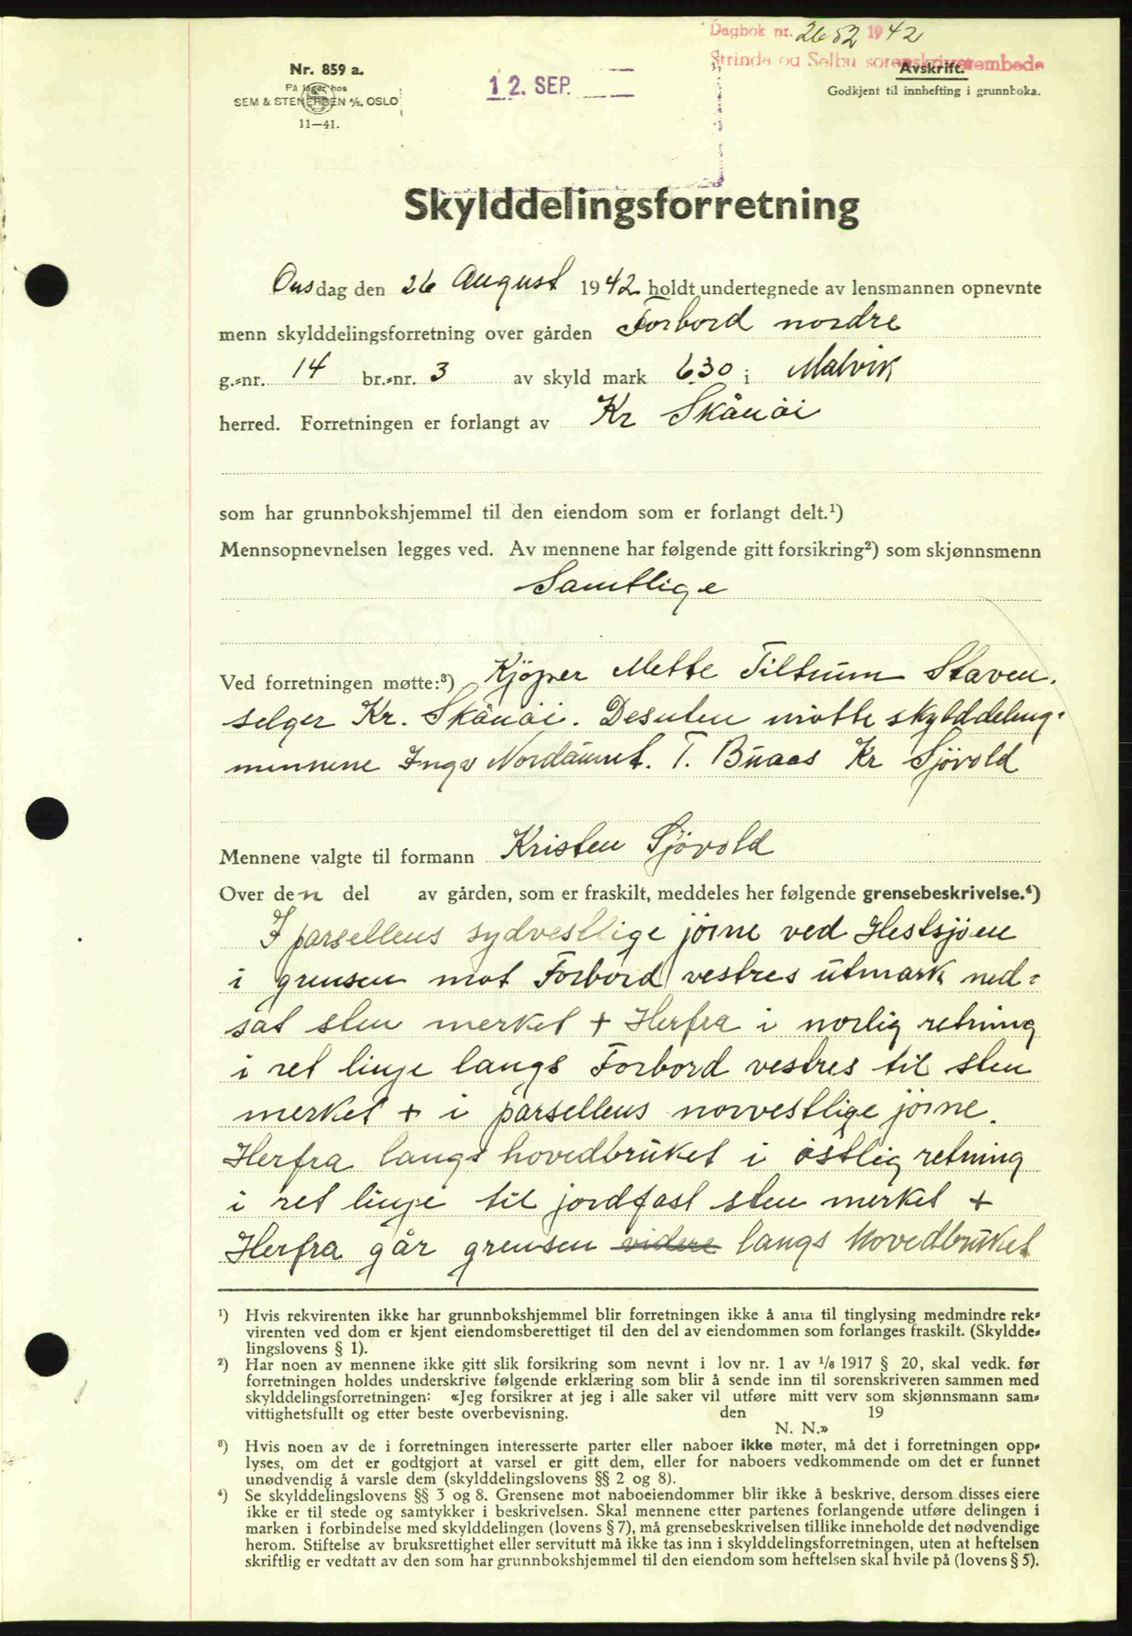 Dagbok nr. 2652 1942
Strinda og Selbu sorenskriverembede
Nr. 859 a.
På lager hos
SEM & STENERSEN A/S, OSLO
11—41.
12. SEP.
Avskrift.
Godkjent til innhefting i grunnboka.
Skylddelingsforretning
Onsdag den 26 August 1942 holdt undertegnede av lensmannen opnevnte
menn skylddelingsforretning over gården Forbord nordre
g.-nr. 14 br.-nr. 3 av skyld mark 6.30 i Malvik
herred. Forretningen er forlangt av Kr Skånöi
som har grunnbokshjemmel til den eiendom som er forlangt delt.¹)
Mennsopnevnelsen legges ved. Av mennene har følgende gitt forsikring²) som skjønnsmenn
Samtlige
Ved forretningen møtte:³) Kjöper Mette Tiltnum Staven.
selger Kr. Skånöi. Desuten mötte skylddeling-
mennene Inga Nordaunet. T. Buaas Kr Sjövold
Mennene valgte til formann Kristen Sjövold
Over den del av gården, som er fraskilt, meddeles her følgende grensebeskrivelse.⁴)
I parsellens sydvestlige jörne ved Hestsjöen
i grensen mot Forbord vestres utmark ned-
sat sten merket + Herfra i norlig retning
i ret linje langs Forbord vestres til sten
merket + i parsellens norvestlige jörne.
Herfra langs hovedbruket i östlig retning
i ret linje til jordfast sten merket +
Herfra går grensen videre langs hovedbruket
¹) Hvis rekvirenten ikke har grunnbokshjemmel blir forretningen ikke å anta til tinglysing medmindre rek-
virenten ved dom er kjent eiendomsberettiget til den del av eiendommen som forlanges fraskilt. (Skyldde-
lingslovens § 1).
²) Har noen av mennene ikke gitt slik forsikring som nevnt i lov nr. 1 av 1/6 1917 § 20, skal vedk. før
forretningen holdes underskrive følgende erklæring som blir å sende inn til sorenskriveren sammen med
skylddelingsforretningen: «Jeg forsikrer at jeg i alle saker vil utføre mitt verv som skjønnsmann sam-
vittighetsfullt og etter beste overbevisning. den 19
N. N.»
³) Hvis noen av de i forretningen interesserte parter eller naboer ikke møter, må det i forretningen opp-
lyses, om det er godtgjort at varsel er gitt dem, eller for naboers vedkommende om det er funnet
unødvendig å varsle dem (skylddelingslovens §§ 2 og 8).
⁴) Se skylddelingslovens §§ 3 og 8. Grensene mot naboeiendommer blir ikke å beskrive, dersom disses eiere
ikke er til stede og samtykker i beskrivelsen. Skal mennene etter partenes forlangende utføre delingen i
marken i forbindelse med skylddelingen (lovens § 7), må grensebeskrivelsen tillike inneholde det nødvendige
herom. Stiftelse av bruksrettighet eller servitutt må ikke tas inn i skylddelingsforretningen, uten at heftelsen
skriftlig er vedtatt av den som har grunnbokshjemmel til den eiendom som heftelsen skal hvile på (lovens § 5).